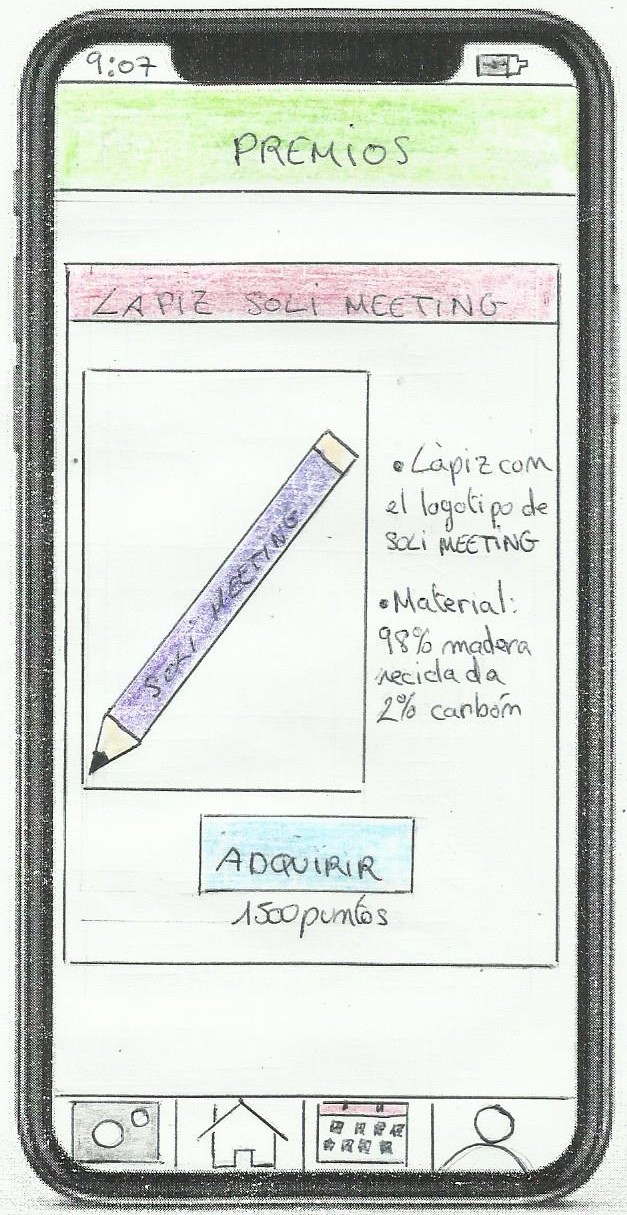 9:07
PREMIOS
LAPIZ SOLI MEETING
SOLI MEETING
• Làpiz con
el logotipo de
SOLI MEETING
• Material:
98% madera
reciclada
2% carbón
ADQUIRIR
1500 puntos